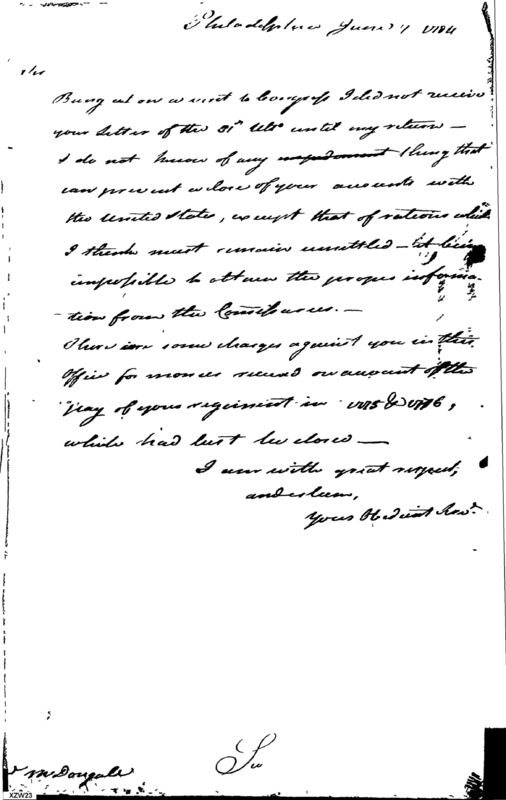 Philadelphia June 7 1784
Sir
Being out on a visit to Congress I did not receive
your letter of the 31st Ulto until my return —
I do not know of any impediment thing that
can prevent a close of your accounts with
the United States, except that of rations which
I think must remain unsettled — it being
impossible to obtain the proper informa-
-tion from the Commissaries. —
There are some charges against you in this
Office for monies received on account of the
pay of your regiment in 1775 & 1776,
which had best be closed —
I am with great respect,
and esteem,
Your Obedient Servt.
McDougale
XZW23